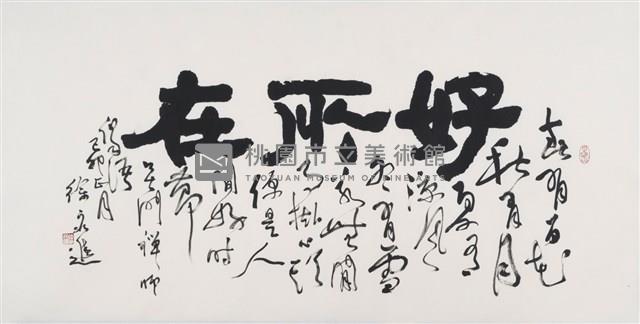 好所在
春有百花
秋有月
夏有
涼風
冬有雪
若無閒
事掛心頭
便是人
間好時
節
無門禪師
己卯正月
徐永進
桃園市立美術館
TAOYUAN MUSEUM OF FINE ARTS